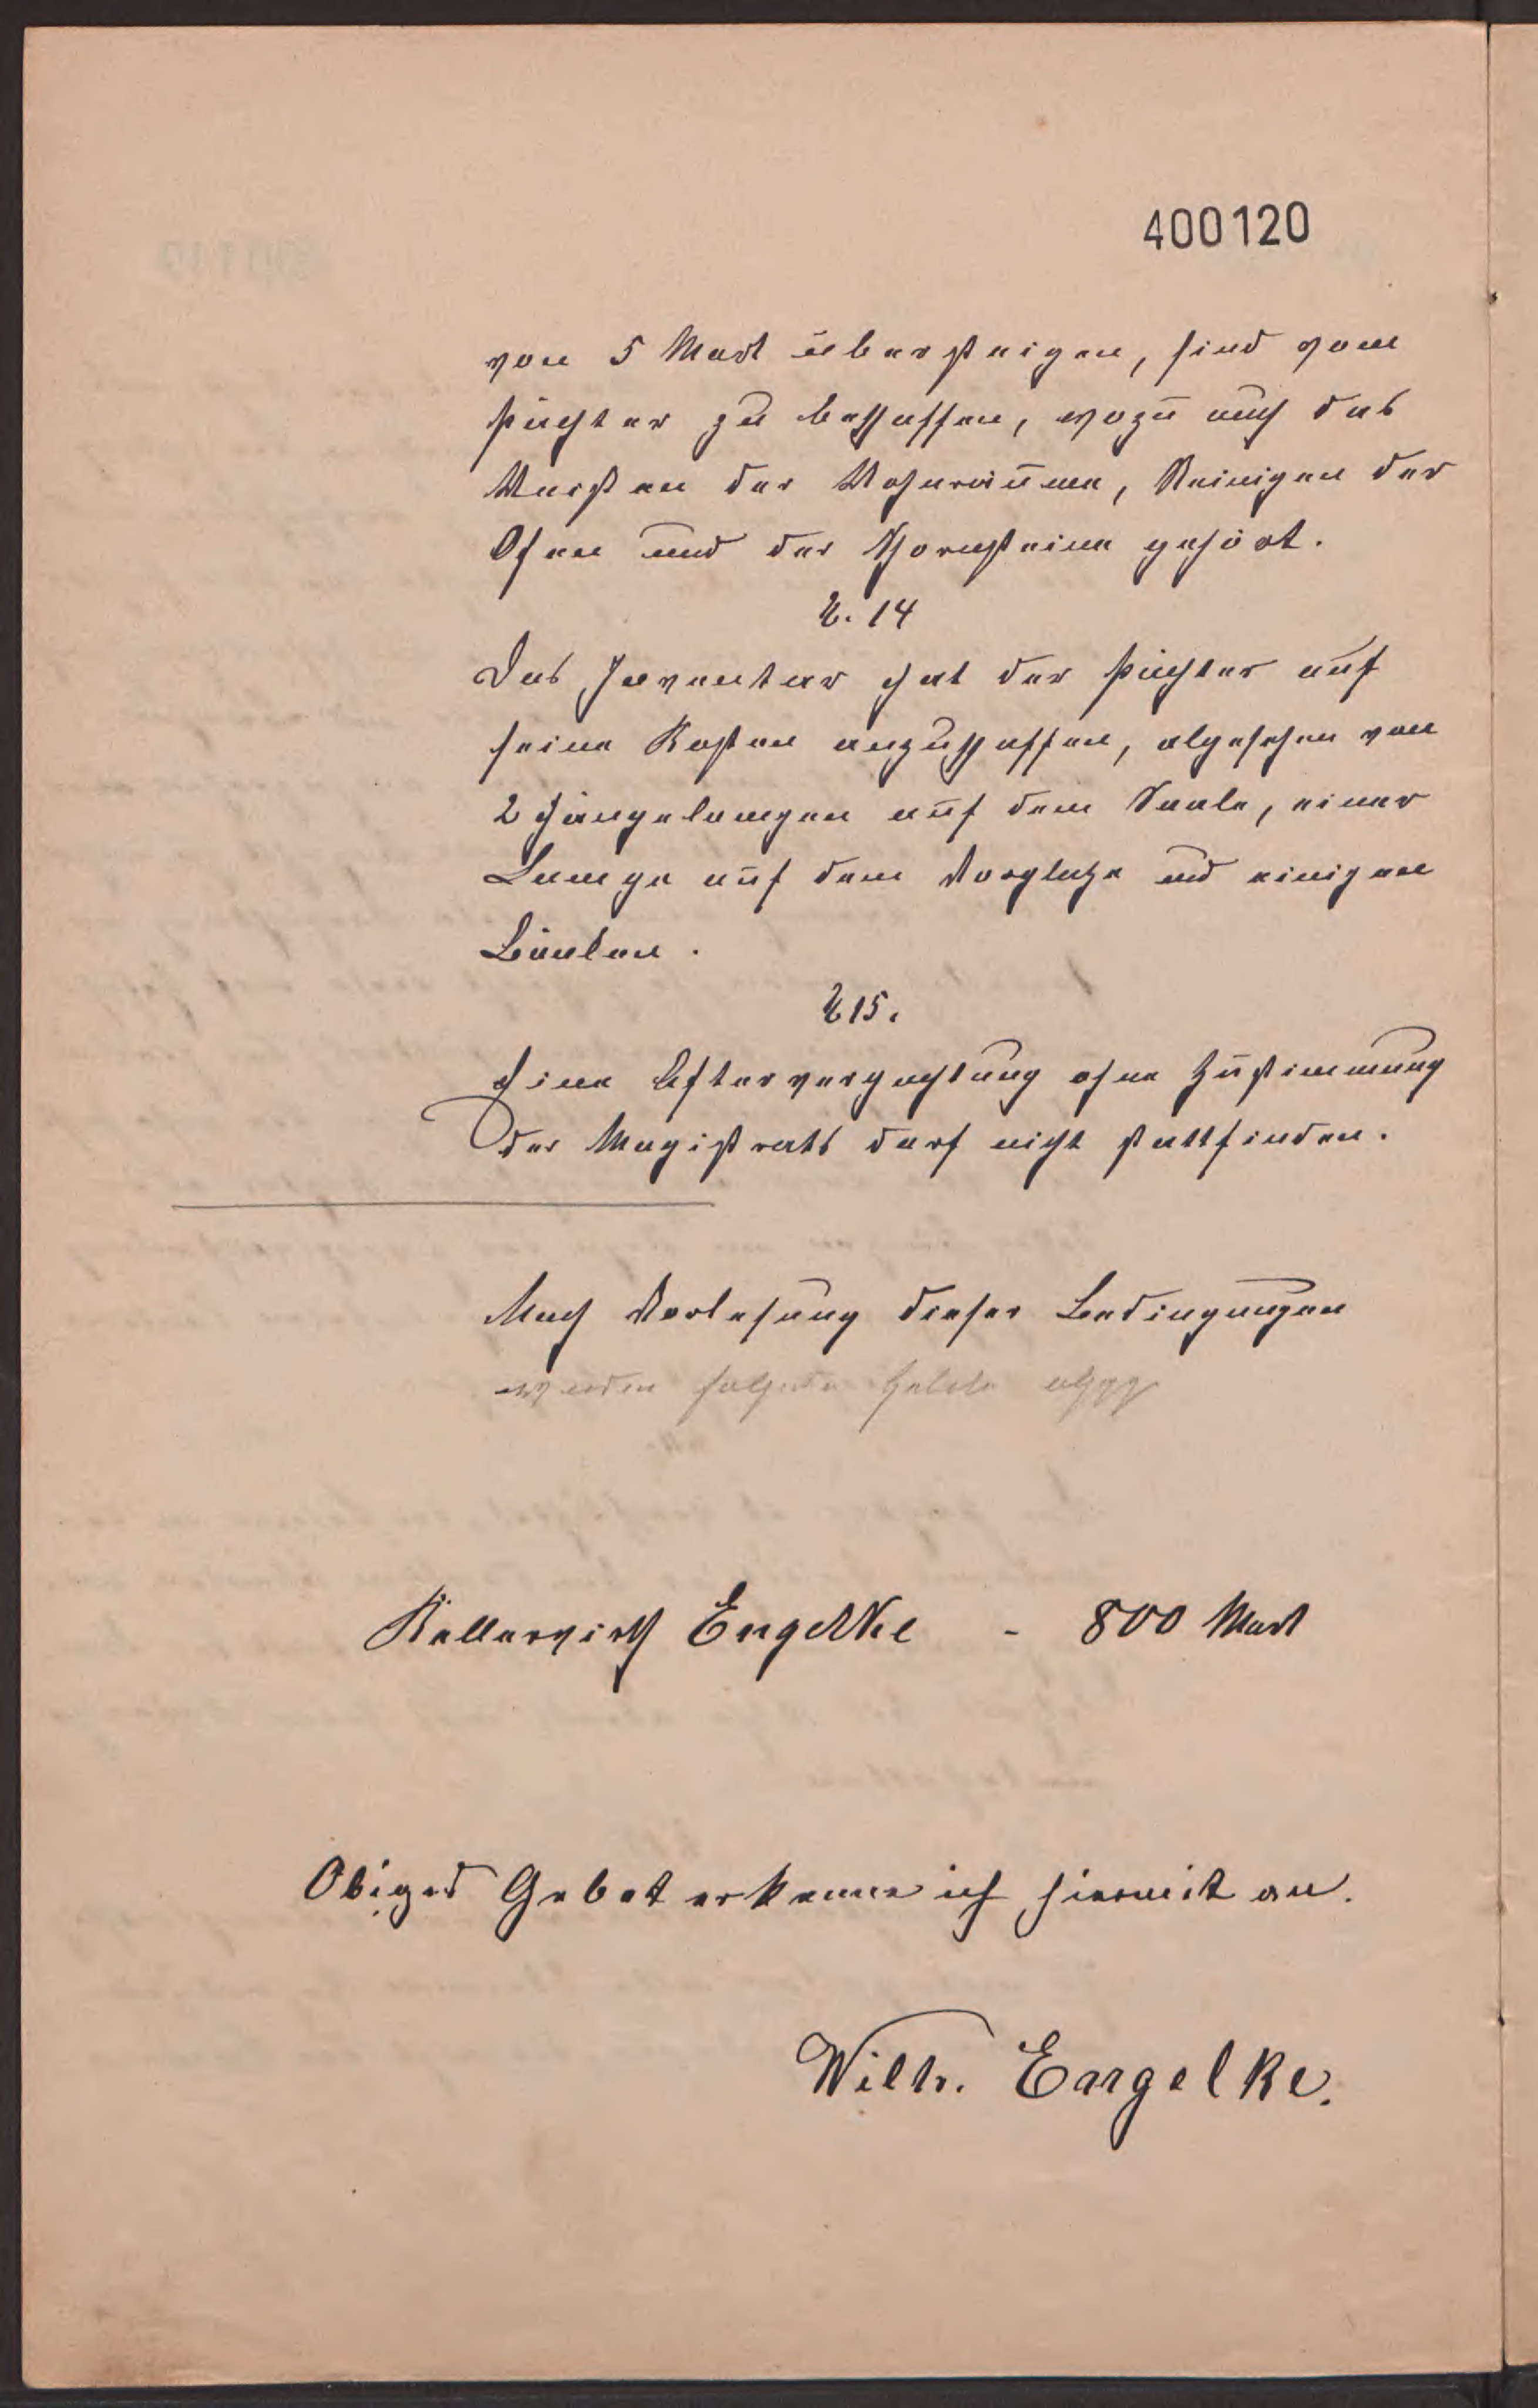 400120
von 5 Mark übersteigen, sind vom
Pächter zu beschaffen, wozu auch das
Weißen der Wohnräume, Reinigen der
Öfen und der Schornsteine gehört.
§. 14
Das Inventar hat der Pächter auf
seine Kosten anzuschaffen, abgesehen von
2 Hängelampen auf dem Saale, einer
Lampe auf dem Vorplatze und einigen
Bänken.
§ 15.
Eine Afterverpachtung ohne Zustimmung
des Magistrats darf nicht stattfinden.
Nach Verlesung dieser Bedingungen
wurden folgende Gebote
Kellerwirth Engelke - 800 Mark
Obiges Gebot erkenne ich hiermit an.
Wilh. Engelke.